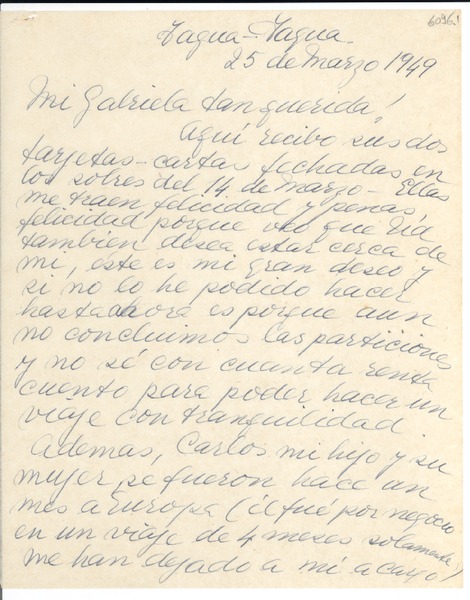 6096.1
Tagua-Tagua.
25 de Marzo 1949
Mi Gabriela tan querida!
Aquí recibo sus dos
tarjetas-cartas fechadas en
los sobres del 14 de Marzo - Ellas
me traen felicidad y penas,
felicidad porque veo que Ud
tambien desea estar cerca de
mi, este es mi gran deseo y
si no lo he podido hacer
hasta ahora es porque aun
no concluimos las particiones
y no sé con cuanta renta
cuento para poder hacer un
viaje con tranquilidad.
Ademas, Carlos mi hijo y su
mujer, se fueron hace un
mes a Europa (él fué por negocio
en un viaje de 4 meses solamente)
me han dejado a mi a cargo